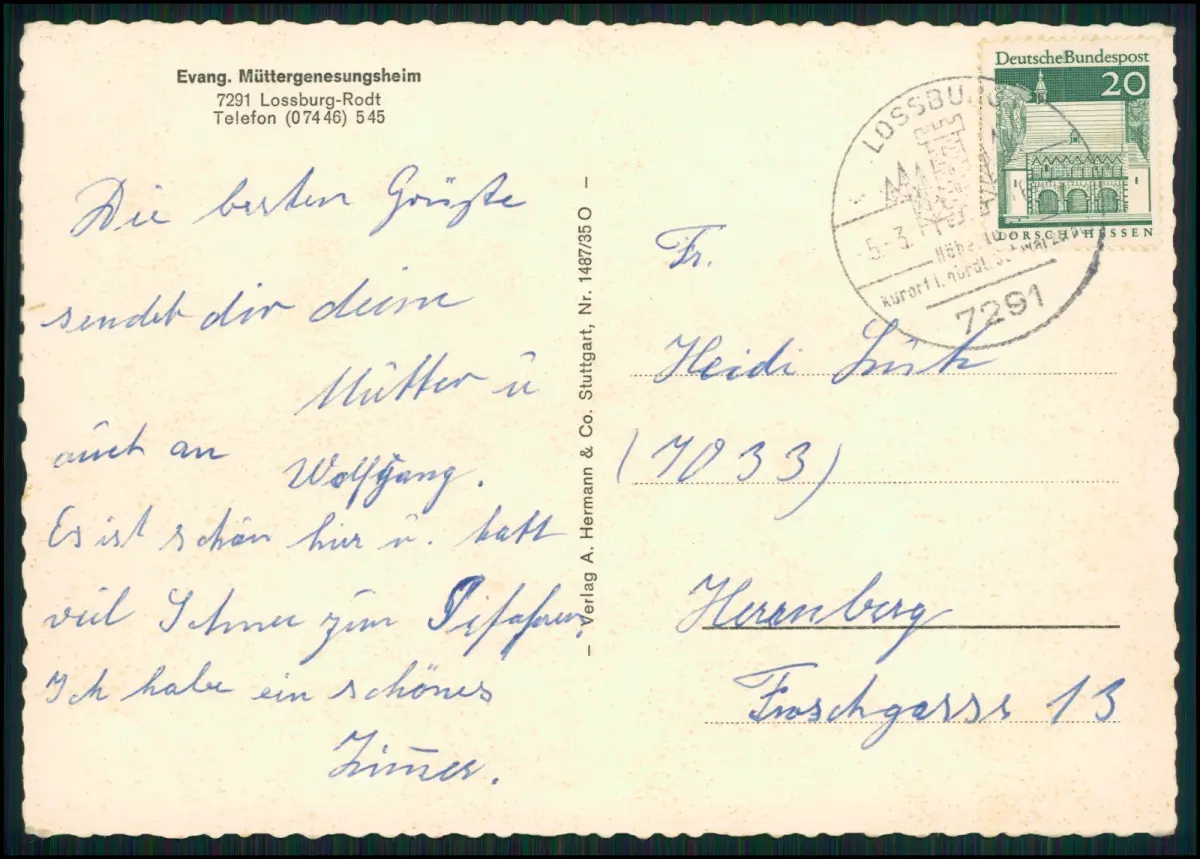 Evang. Müttergenesungsheim
7291 Lossburg-Rodt
Telefon (07446) 545
Die besten Grüße
sendet dir deine
Mutter u
auch an
Wolfgang.
Es ist schön hier u. hatt
viel Schnee zum
Ich habe ein schönes
Zimmer.
– Verlag A. Hermann & Co. Stuttgart, Nr. 1487/35 O –
Deutsche Bundespost
20
LORSCH/HESSEN
LOSSBURG
-5.-3.
Höhen
Kurort i. nördl.
7291
Fr.
Heidi
(7033)
Herrenberg
Froschgasse 13